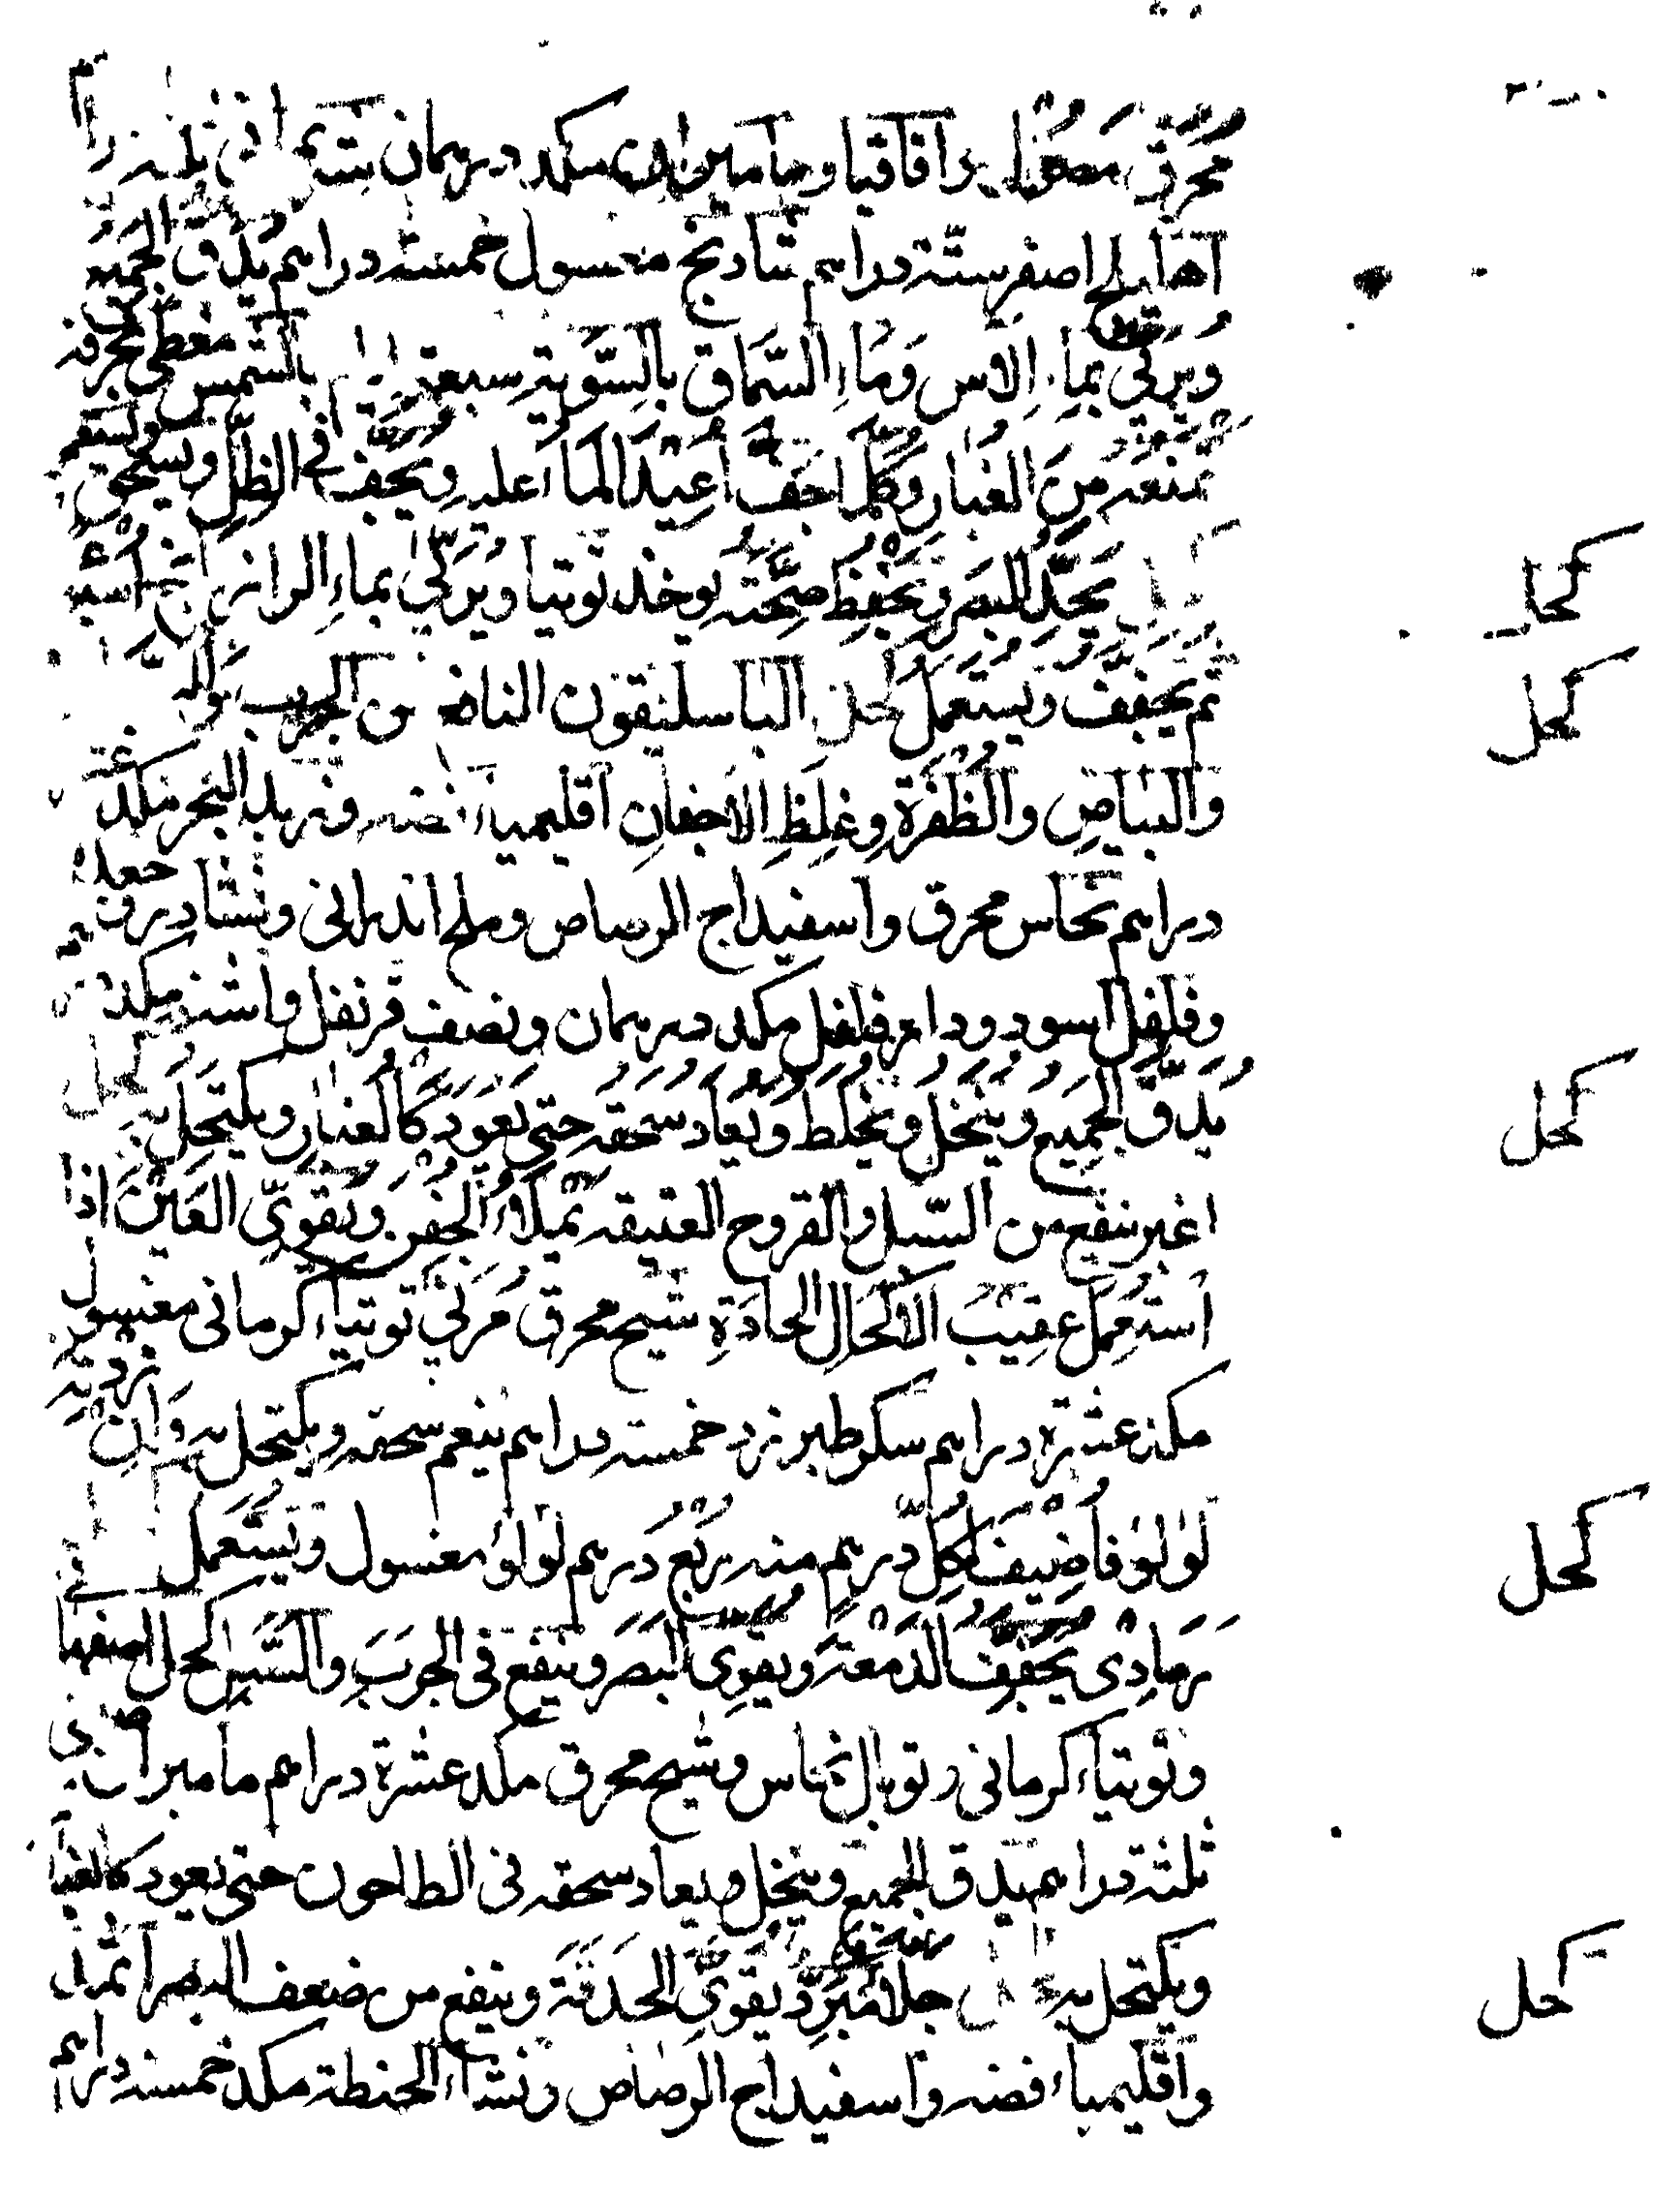 محرق مغسول واقاقيا وماميران مكد درهمان بشد
اهليلج اصفر ستة دراهم شادنج مغسول خمسة دراهم يدق الجميع
ويربى بماء الاس وماء السماق بالسوية سبعة ايام بالشمس مغطى بخرقة
تمنعه من الغبار وكلما جف اعيد الماء عليه ويجفف في الظل ويسحق ويستعمل
كحل
يحد البصر ويحفظ صحته يوخذ توتيا ويربى بماء الرازيانج
ثم يجفف ويستعمل كحل الباسليقون النافع من الجرب
كحل
والبياض والظفرة وغلظ الاجفان اقليمياء فضه وزبد البحر مكد عشرة
دراهم نحاس محرق واسفيداج الرصاص وملح اندرانى ونشادر
وفلفل اسود ودارفلفل مكد درهمان ونصف قرنفل واشنه مكد
يدق الجميع وينخل ويخلط ويعاد سحقه حتى يعود كالغبار ويكتحل به كحل
كحل
اغبر ينفع من السبل والقروح العتيقه يملاء الحفر ويقوي العين اذا
استعمل عقيب الاكحال الحادة شيح محرق مربى توتياء كرمانى مغسول
مكد عشرة دراهم سكر طبرزد خمسة دراهم ينعم سحقه ويكتحل به وان زدته
لؤلؤ فاضيف لكل درهم منه ربع درهم لؤلؤ مغسول ويستعمل
كحل
رمادى يجفف الدمعة ويقوى البصر وينفع فى الجرب والسبل كحل اصفهانى
وتوتياء كرمانى وتوبال نحاس وشيح محرق مكد عشرة دراهم ماميران صينى
ثلثة دراهم يدق الجميع وينخل ويعاد سحقه فى الطاحون حتى يعود كالغبار
ويكتحل به جلا مبرد يقوى الحدقة وينفع من ضعف البصر اثمد
كحل
واقليمياء فضه واسفيداج الرصاص ونشاء الحنطة مكد خمسة دراهم